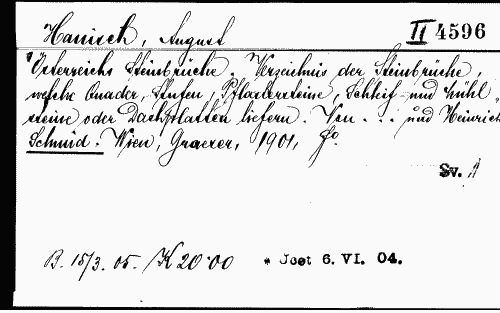 Hanisch, August II 4596
Österreichs Steinbrüche. Verzeichnis der Steinbrüche,
welche Quader, Stufen, Pflastersteine, Schleif- und Mühl-
steine oder Dachplatten liefern. Von . . . und Heinrich
Schmid. Wien, Graeser, 1901, fo.
Sv.
B. 15/3. 05. /K 20·00 * Joet 6. VI. 04.